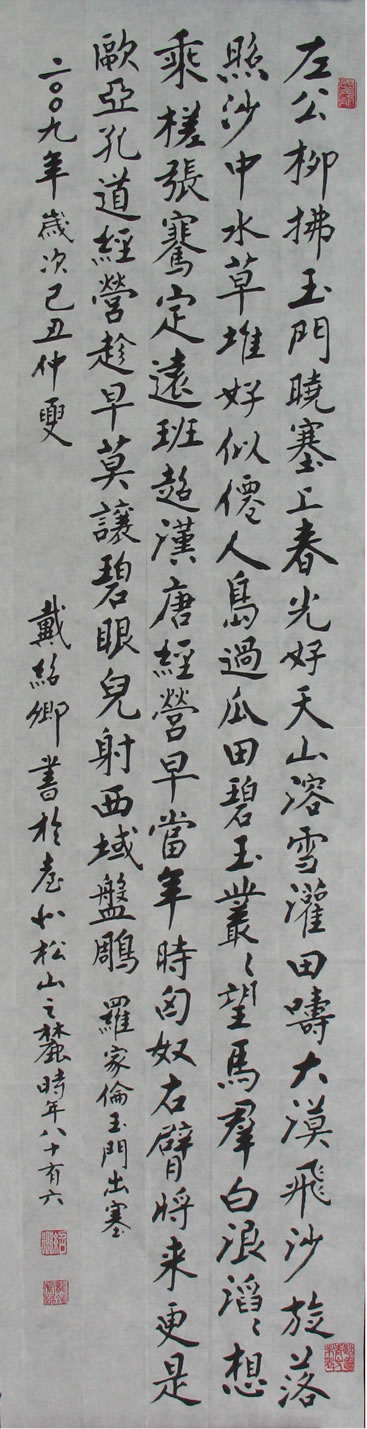 左公柳拂玉門曉塞上春光好天山溶雪灌田疇大漠飛沙旋落
照沙中水草堆好似僊人島過瓜田碧玉叢〻望馬羣白浪滔〻想
乘槎張騫定遠班超漢唐經營早當年時匈奴右臂將來更是
歐亞孔道經營趁早莫讓碧眼兒射西域盤鵰 羅家倫玉門出塞
二〇〇九年歲次己丑仲夏 戴紹卿書於臺北松山之麓時年八十有六